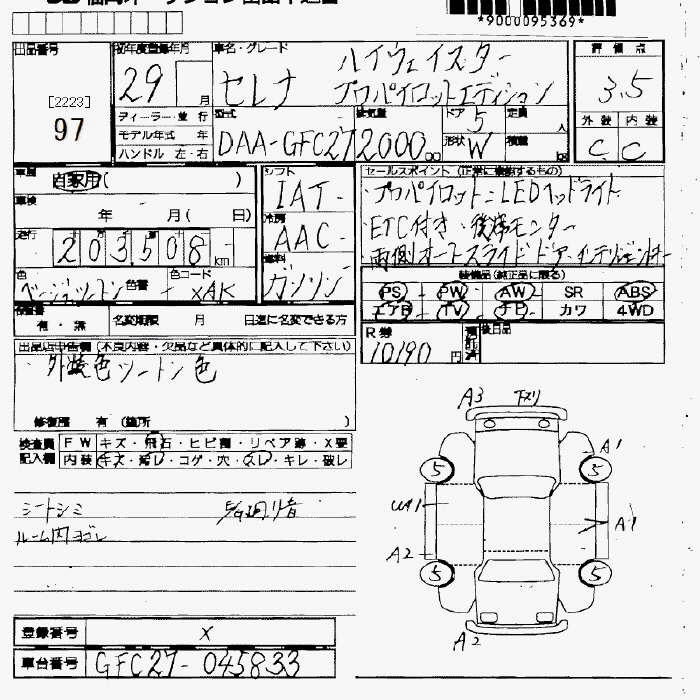 *9000095369*
出品番号
[2223]
97
初年度登録年月
29 月
ディーラー・並 行
モデル年式 年
ハンドル 左・右
車名・グレード
セレナ ハイウェイスター
プロパイロットエディション
型式
DAA-GFC27
排気量
2000 cc
ドア
5
形状
W
定員
人
積載
評 価 点
3.5
外 装 内 装
C C
車歴
自家用 ( )
車検
年 月 ( 日)
走行
203508 km
色
ベージュツートン
色替
色コード
XAK
シフト
IAT
冷房
AAC
燃料
ガソリン
セールスポイント (正常に機能するもの)
・プロパイロット・LEDヘッドライト
・ETC付き・後席モニター
・両側オートスライドドア・インテリジェントキー
装備品(純正品に限る)
PS PW AW SR ABS
エアB TV ナビ カワ 4WD
R券
10190 円
預託済
後日品
有 ・ 無 名変期限 月 日迄に名変できる方
出品店申告欄 (不良内容・欠品など具体的に記入して下さい)
外装色ツートン色
修復歴 有 (箇所 )
検査員
記入欄
FW キズ・飛石・ヒビ割・リペア跡・X要
内装 キズ・汚レ・コゲ・穴・スレ・キレ・破レ
シートシミ
ルーム内ヨゴレ
登録番号 X
車台番号 GFC27-045833
A3 下スリ
A1
5 5
A1
A2
5 5
A2